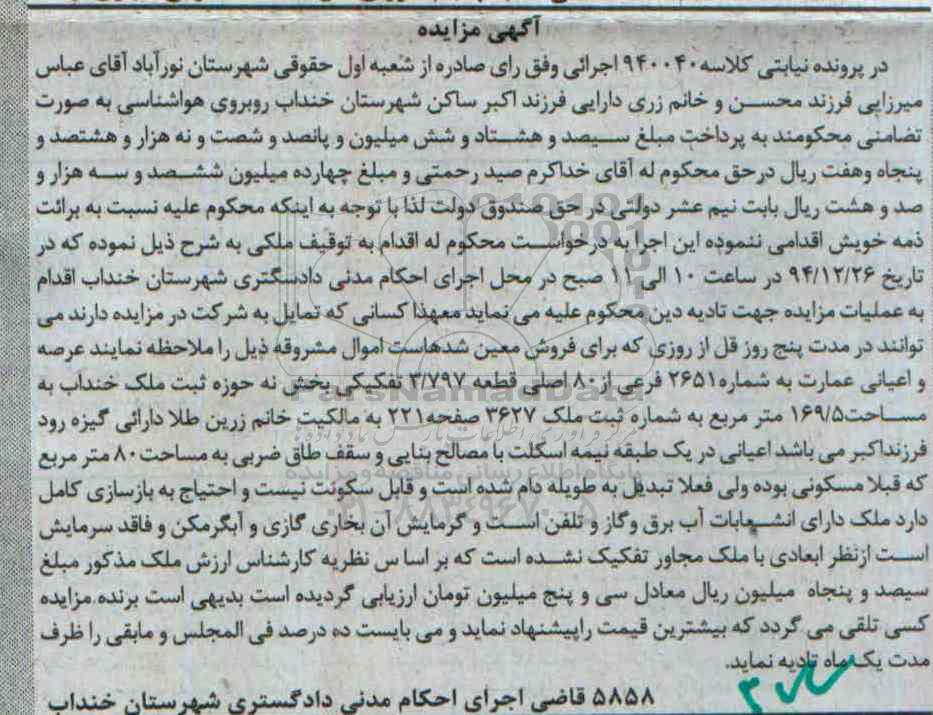 آگهی مزایده
در پرونده نیابتی کلاسه ۹۴۰۰۴۰ اجرائی وفق رای صادره از شعبه اول حقوقی شهرستان نورآباد آقای عباس
میرزایی فرزند محسن و خانم زری دارایی فرزند اکبر ساکن شهرستان خنداب روبروی هواشناسی به صورت
تضامنی محکومند به پرداخت مبلغ سیصد و هشتاد و شش میلیون و پانصد و شصت و نه هزار و هشتصد و
پنجاه وهفت ریال درحق محکوم له آقای خداکرم صید رحمتی و مبلغ چهارده میلیون ششصد و سه هزار و
صد و هشت ریال بابت نیم عشر دولتی در حق صندوق دولت لذا با توجه به اینکه محکوم علیه نسبت به برائت
ذمه خویش اقدامی ننموده این اجرا به درخواست محکوم له اقدام به توقیف ملکی به شرح ذیل نموده که در
تاریخ ۹۴/۱۲/۲۶ در ساعت ۱۰ الی ۱۱ صبح در محل اجرای احکام مدنی دادسگتری شهرستان خنداب اقدام
به عملیات مزایده جهت تادیه دین محکوم علیه می نماید معهذا کسانی که تمایل به شرکت در مزایده دارند می
توانند در مدت پنج روز قل از روزی که برای فروش معین شدهاست اموال مشروقه ذیل را ملاحظه نمایند عرصه
و اعیانی عمارت به شماره ۲۶۵۱ فرعی از ۸۰ اصلی قطعه ۳/۷۹۷ تفکیکی بخش نه حوزه ثبت ملک خنداب به
مساحت۱۶۹/۵ متر مربع به شماره ثبت ملک ۳۶۲۷ صفحه۲۲۱ به مالکیت خانم زرین طلا دارائی گیزه رود
فرزنداکبر می باشد اعیانی در یک طبقه نیمه اسکلت با مصالح بنایی و سقف طاق ضربی به مساحت۸۰ متر مربع
که قبلا مسکونی بوده ولی فعلا تبدیل به طویله دام شده است و قابل سکونت نیست و احتیاج به بازسازی کامل
دارد ملک دارای انشعابات آب برق وگاز و تلفن است و گرمایش آن بخاری گازی و آبگرمکن و فاقد سرمایش
است ازنظر ابعادی با ملک مجاور تفکیک نشده است که بر اسا س نظریه کارشناس ارزش ملک مذکور مبلغ
سیصد و پنجاه میلیون ریال معادل سی و پنج میلیون تومان ارزیابی گردیده است بدیهی است برنده مزایده
کسی تلقی می گردد که بیشترین قیمت راپیشنهاد نماید و می بایست ده درصد فی المجلس و مابقی را ظرف
مدت یک ماه تادیه نماید.
۵۸۵۸ قاضی اجرای احکام مدنی دادگستری شهرستان خنداب
ParsNamadData
پایگاه اطلاع رسانی مناقصه و مزایده